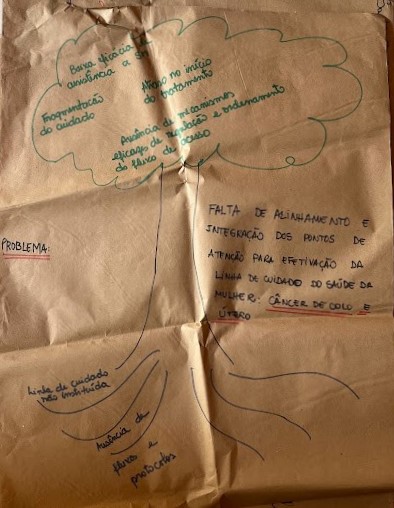 Baixa eficácia da
assistência a
Atraso no início
do tratamento
Fragmentação
do cuidado
Ausência de mecanismos
eficazes de regulação e ordenamento
do fluxo de acesso
PROBLEMA:
FALTA DE ALINHAMENTO E
INTEGRAÇÃO DOS PONTOS DE
ATENÇÃO PARA EFETIVAÇÃO DA
LINHA DE CUIDADO DO SAÚDE DA
MULHER: CÂNCER DE COLO E
ÚTERO
Linha de cuidado
não instituída
Ausência de
fluxo e
protocolos